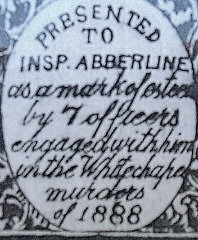 PRESENTED
TO
INSP. ABBERLINE
as a mark of esteem
by 7 officers
engaged with him
in the Whitechapel
murders
of 1888